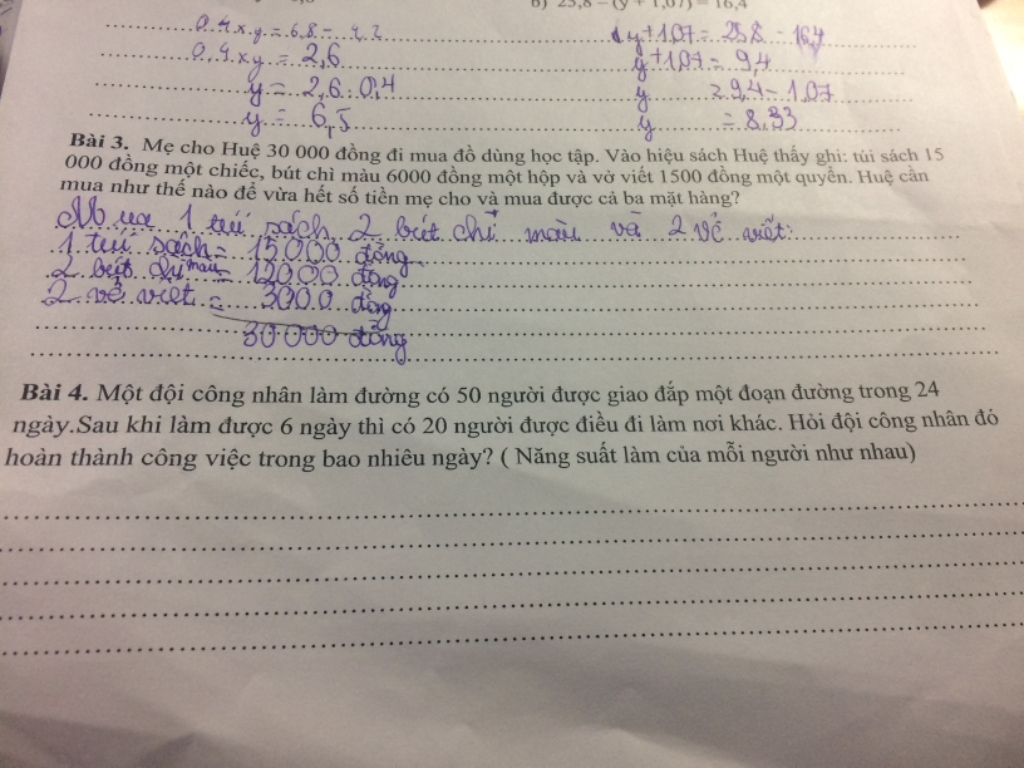 b) 25,8 – (y + 1,07) = 16,4
0.4 x y = 6,8 - 4,2
y + 1,07 = 25,8 - 16,4
0.4 x y = 2,6
y + 1,07 = 9,4
y = 2,6 : 0,4
y = 9,4 - 1,07
y = 6,5
y = 8,33
Bài 3. Mẹ cho Huệ 30 000 đồng đi mua đồ dùng học tập. Vào hiệu sách Huệ thấy ghi: túi sách 15
000 đồng một chiếc, bút chì màu 6000 đồng một hộp và vở viết 1500 đồng một quyển. Huệ cần
mua như thế nào để vừa hết số tiền mẹ cho và mua được cả ba mặt hàng?
Mua 1 túi sách 2 bút chì màu và 2 vở viết:
1 túi sách = 15000 đồng
2 bút chì màu = 12000 đồng
2 vở viết = 3000 đồng
30000 đồng
Bài 4. Một đội công nhân làm đường có 50 người được giao đắp một đoạn đường trong 24
ngày.Sau khi làm được 6 ngày thì có 20 người được điều đi làm nơi khác. Hỏi đội công nhân đó
hoàn thành công việc trong bao nhiêu ngày? ( Năng suất làm của mỗi người như nhau)